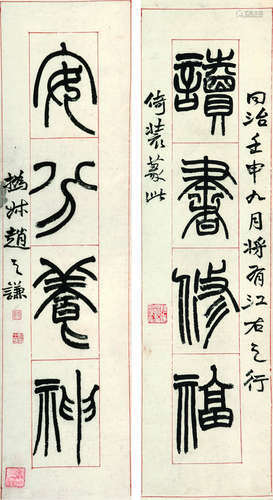 讀書修福
同治壬申九月將有江右之行
倚裝篆此
安分養神
撝叔趙之謙